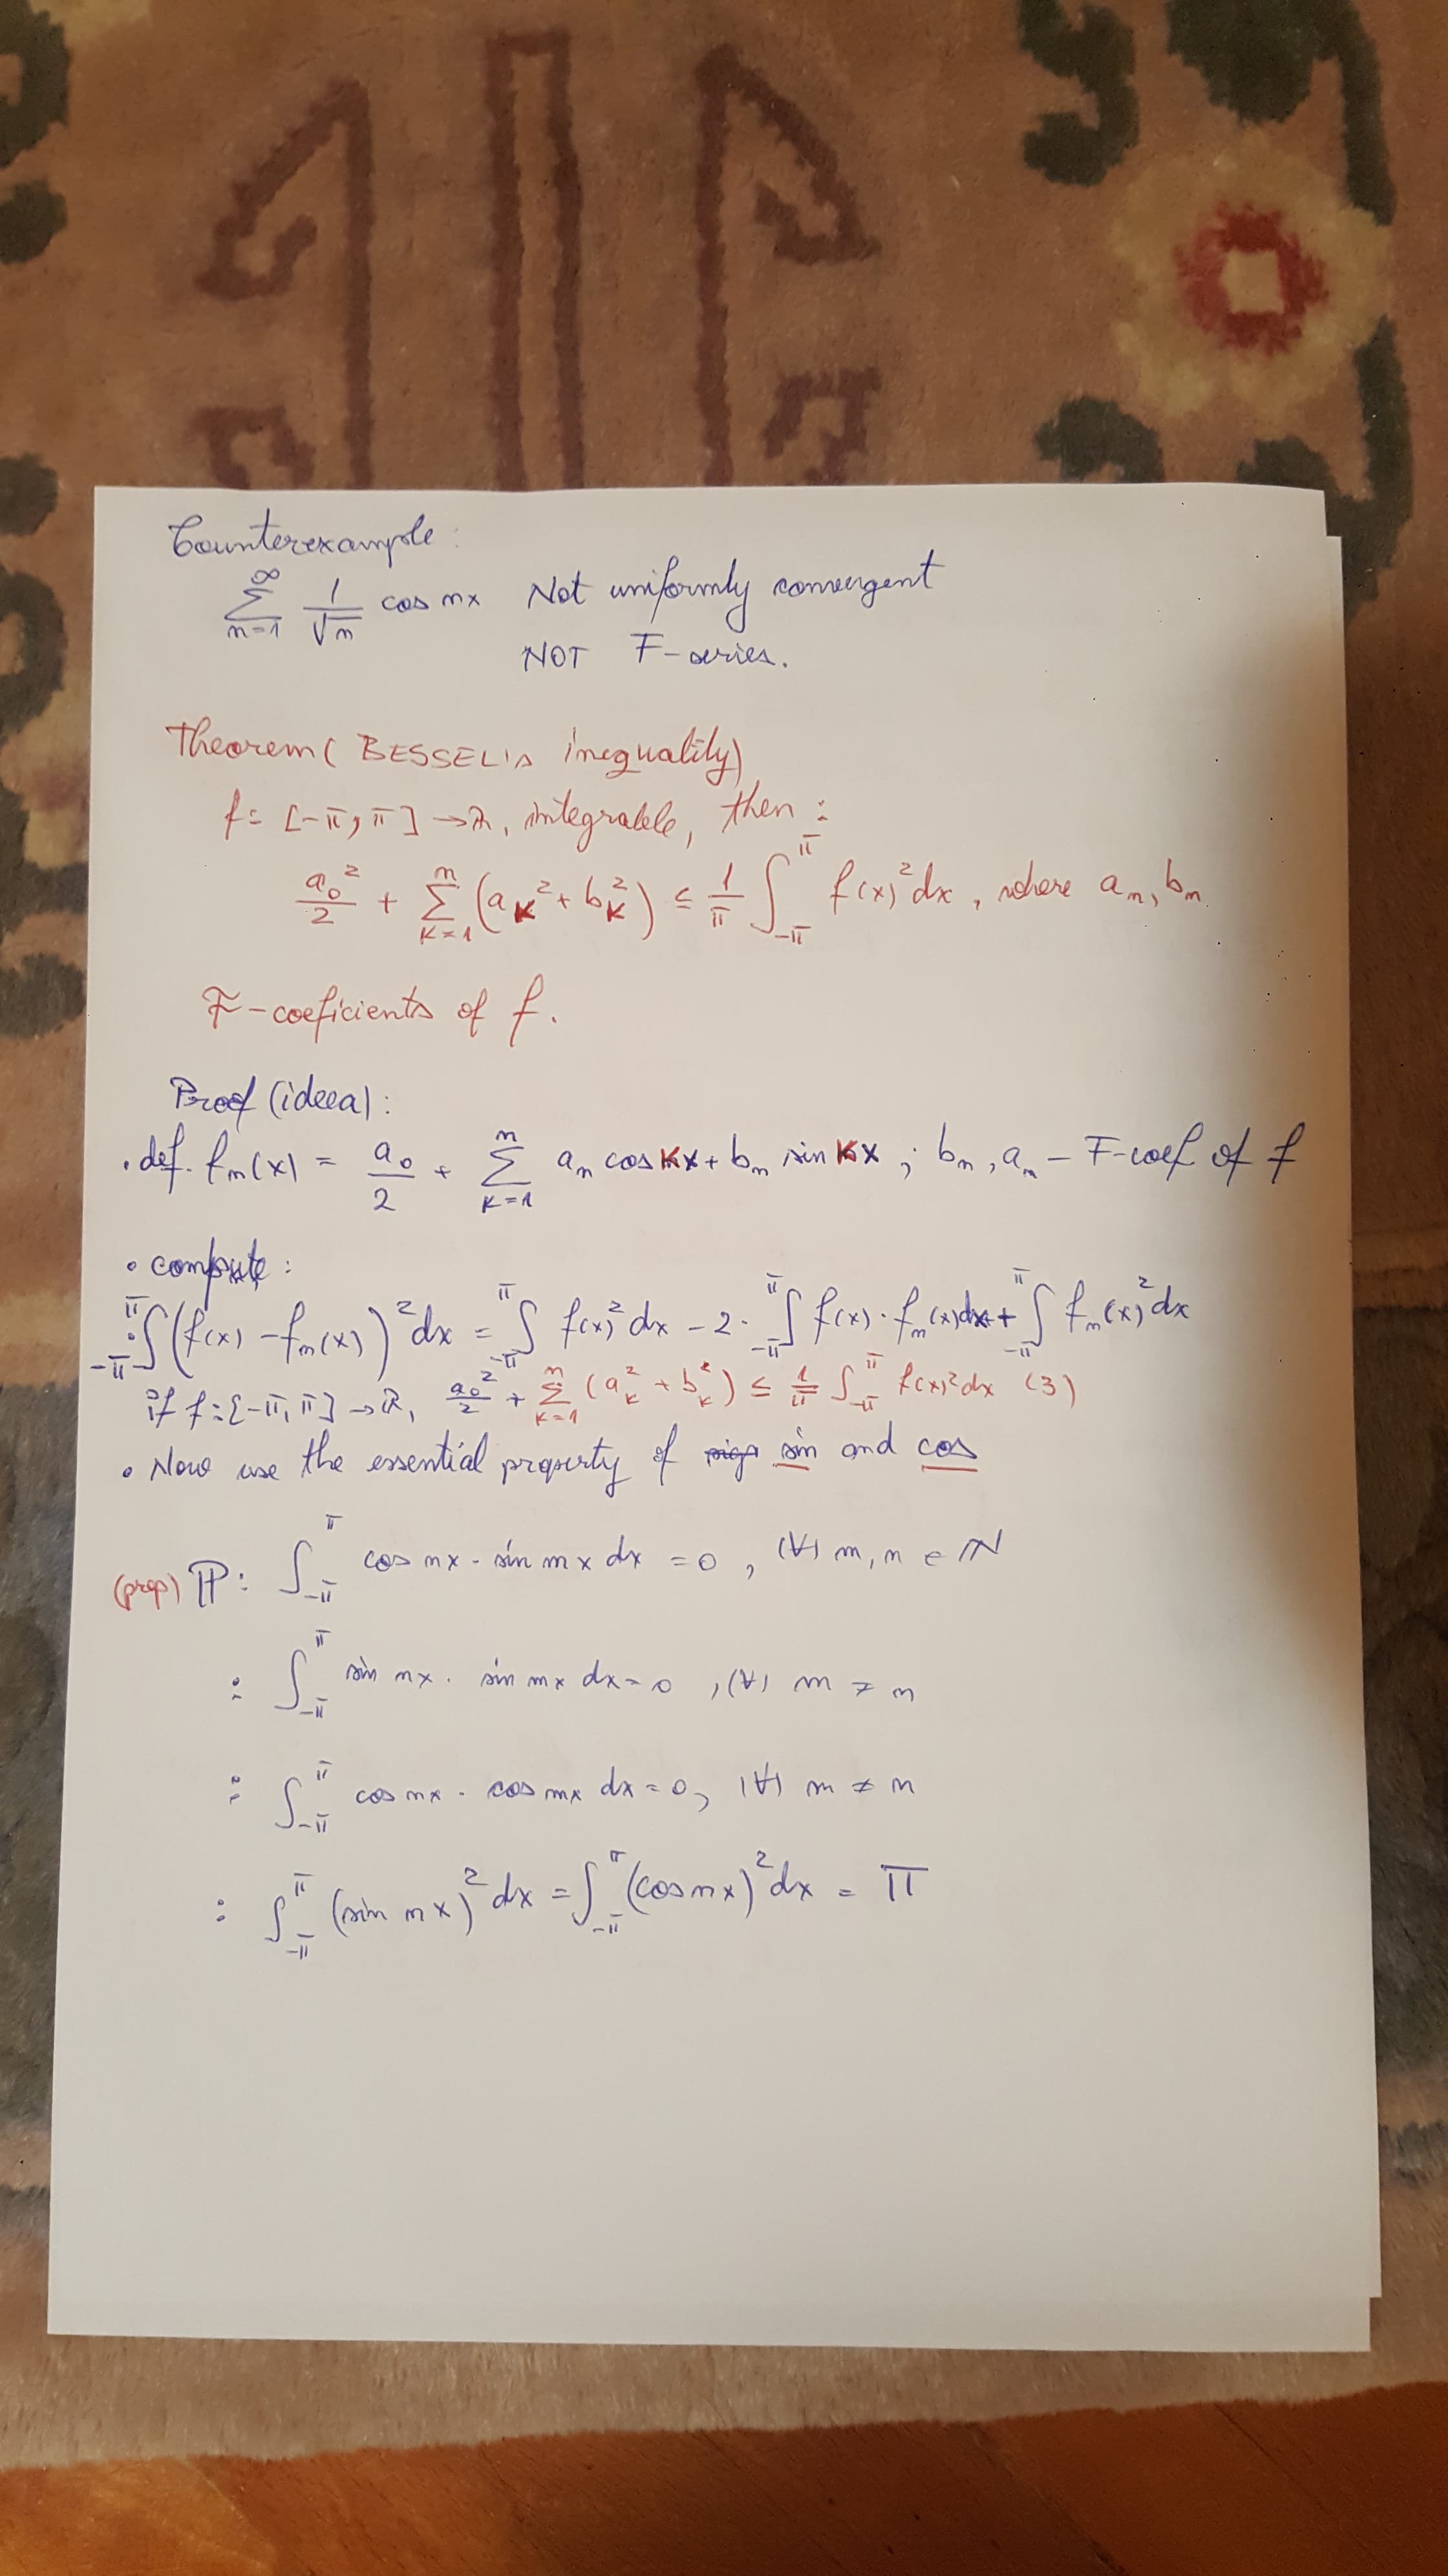 Counterexample:
∞∑n=1 1/√n cos nx Not uniformly convergent
NOT F-series.
Theorem (BESSEL's inequality)
f: [-π, π] → ℝ, integrable, then:
a₀²/2 + ∑_{k=1}^{n} (a_k² + b_k²) ≤ 1/π ∫_{-π}^{π} f(x)² dx, where aₙ, bₙ
F-coeficients of f.
Proof (ideea):
• def. fₙ(x) = a₀/2 + ∑_{k=1}^{n} aₙ cos kx + bₙ sin kx ; bₙ, aₙ - F-coef of f
• compute:
∫_{-π}^{π} (f(x) - fₙ(x))² dx = ∫_{-π}^{π} f(x)² dx - 2 · ∫_{-π}^{π} f(x) · fₙ(x) dx + ∫_{-π}^{π} fₙ(x)² dx
if f: [-π, π] → ℝ, a₀²/2 + ∑_{k=1}^{n} (a_k² + b_k²) ≤ 1/π ∫_{-π}^{π} f(x)² dx (3)
• Now use the essential property of sin and cos
(prop) P: ∫_{-π}^{π} cos nx · sin mx dx = 0, (∀) m, n ∈ ℕ
: ∫_{-π}^{π} sin nx · sin mx dx = 0, (∀) m ≠ n
: ∫_{-π}^{π} cos nx · cos mx dx = 0, (∀) m ≠ n
: ∫_{-π}^{π} (sin nx)² dx = ∫_{-π}^{π} (cos nx)² dx = π